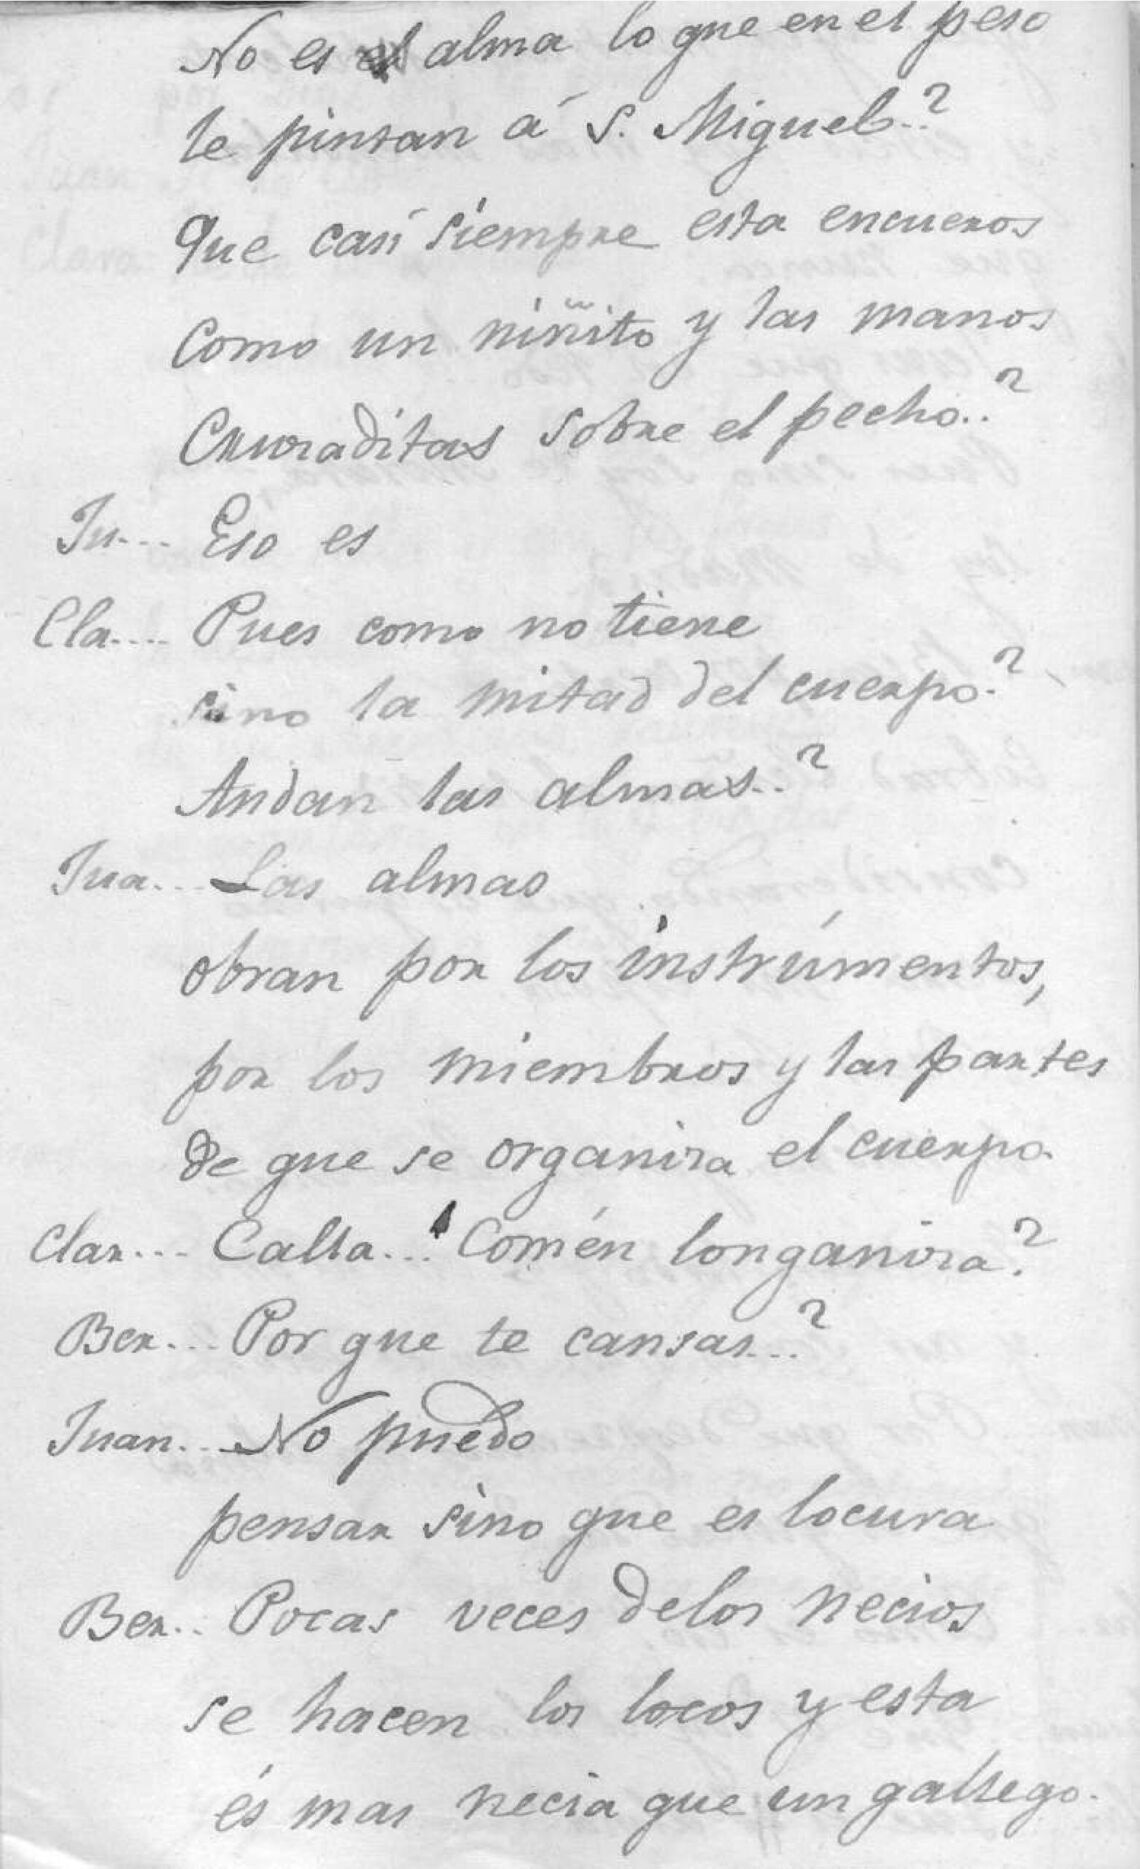 No es el alma lo que en el peso
le pintan á S. Miguel..?
Que casi siempre esta encueros
Como un niñito y las manos
Cruzaditas sobre el pecho..?
Ju... Eso es
Cla.... Pues como no tiene
sino la mitad del cuerpo.?
Andan las almas..?
Jua... Las almas
obran por los instrúmentos,
por los miembros y las partes
de que se organiza el cuerpo.
Clar... Calla...! Comén longaniza?
Ber... Por que te cansas...?
Juan.. No puedo
pensar sino que es locura
Ber.. Pocas veces delos necios
se hacen los locos y esta
és mas necia que un gallego.